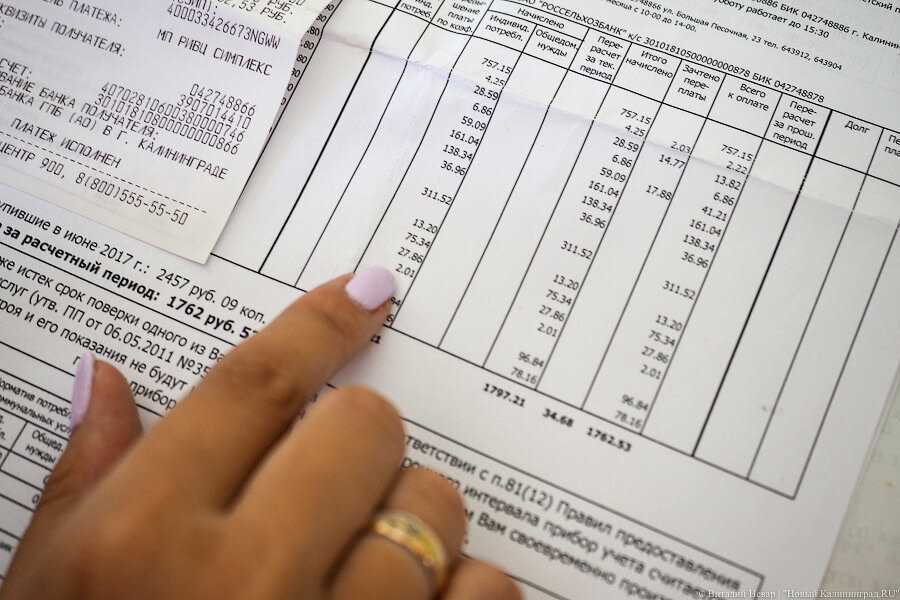 2.53 РУБ.
РУБ.
ДЕЛЬ ПЛАТЕЖА:
40003342667 3NGWW
КВИЗИТЫ ПОЛУЧАТЕЛЯ:
МП РИВЦ СИМПЛЕКС
042748866
3907014410
СЧЕТ:
40702810600380000746
БАНИЕ БАНКА ПОЛУЧАТЕЛЯ:
30101810800000000866
БАНКА ГПБ (АО) В Г. КАЛИНИНГРАДЕ
ПЛАТЕЖ ИСПОЛНЕН
ЦЕНТР 900, 8(800)555-55-50
боту работает до 15:30
42748866 ул. Большая Песочная, 23 тел. 643912, 643904
месяца с 10-00 до 14-00.
"РОССЕЛЬХОЗБАНК" к/с 30101810500000000878 БИК 042748878
потреб.
нужды
шение платы по коэф.
Начислено
Индивид. потребл.
Общедом. нужды
Пере- расчет за тек. период
Итого начислено
Зачтено пере- платы
Всего к оплате
Пере- расчет за прош. период
Долг
757.15 757.15 757.15
4.25 4.25 2.03 2.22
28.59 28.59 14.77 13.82
6.86 6.86 6.86
59.09 59.09 17.88 41.21
161.04 161.04 161.04
138.34 138.34 138.34
36.96 36.96 36.96
311.52 311.52 311.52
13.20 13.20 13.20
75.34 75.34 75.34
27.86 27.86 27.86
2.01 2.01 2.01
96.84 96.84
78.16 78.16
1797.21 34.68 1762.53
упившие в июне 2017 г.: 2457 руб. 09 коп.
за расчетный период: 1762 руб. 5
же истек срок поверки одного из Ва
слуг (утв. ПП от 06.05.2011 №35
троя и его показания не будут
прибор
ормативы потреб
оммунальных усл
Общед. нужды
ответствии с п.81(12) Правил предоставления
интервала прибор учета считае
Вам своевременно произ
© Виталий Невар | "Новый Калининград.RU"